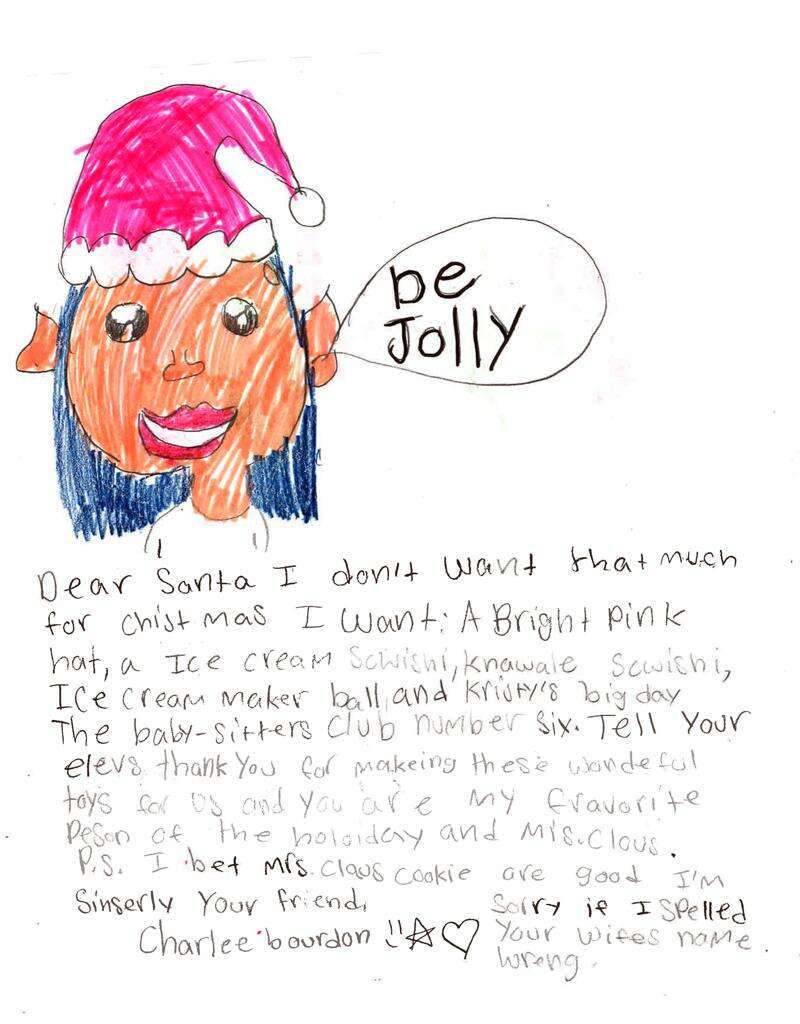 be
Jolly
Dear Santa I don't want that much
for chistmas I want: A Bright pink
hat, a Ice cream Scwishi, Knawale Scwishi,
Ice cream maker ball, and Kristy's big day
The baby-sitters club number six. Tell Your
elevs thank You for makeing these wondeful
toys for us and you are my fravorite
Peson of the holoiday and Mis. Claus.
P.S. I bet Mrs. Claus cookie are good I'm
Sorry if I spelled
Your wifes name
wrong.
Sinserly Your friend,
Charlee bourdon